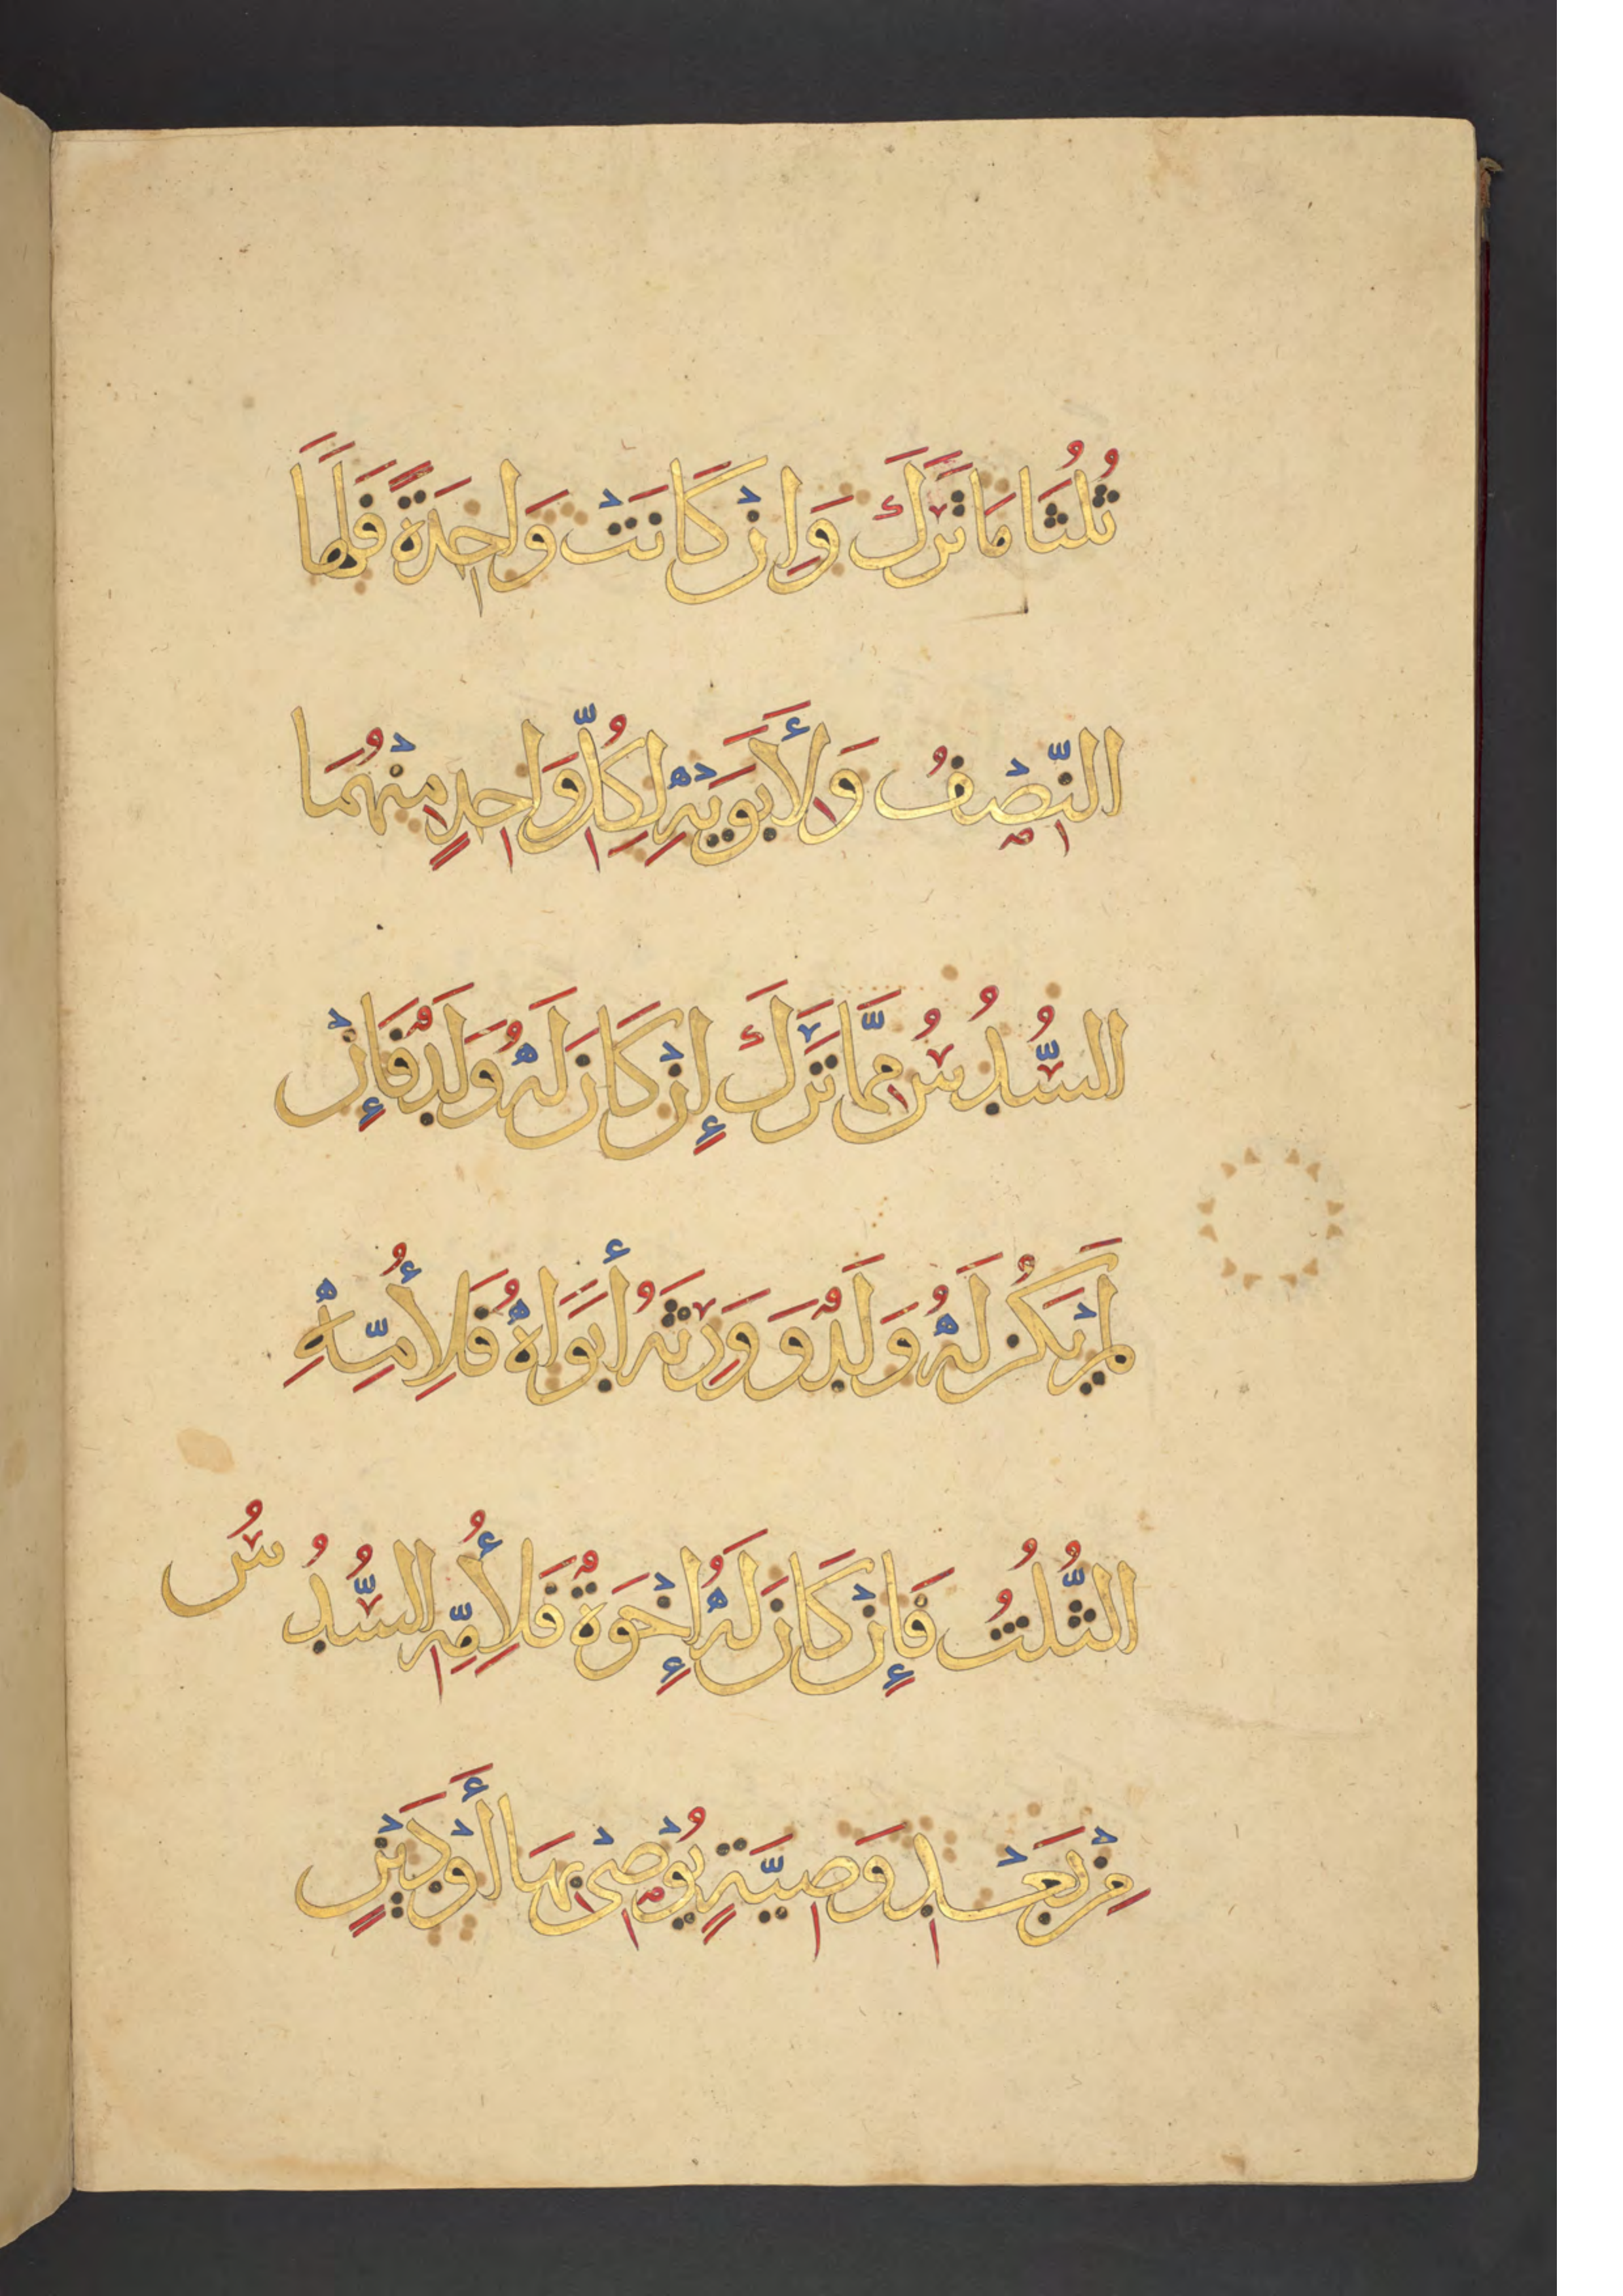 ثُلُثَا مَا تَرَكَ وَإِنْ كَانَتْ وَاحِدَةً فَلَهَا
النِّصْفُ وَلِأَبَوَيْهِ لِكُلِّ وَاحِدٍ مِنْهُمَا
السُّدُسُ مِمَّا تَرَكَ إِنْ كَانَ لَهُ وَلَدٌ فَإِنْ
لَمْ يَكُنْ لَهُ وَلَدٌ وَوَرِثَهُ أَبَوَاهُ فَلِأُمِّهِ
الثُّلُثُ فَإِنْ كَانَ لَهُ إِخْوَةٌ فَلِأُمِّهِ السُّدُسُ
مِنْ بَعْدِ وَصِيَّةٍ يُوْصِيْ بِهَا أَوْ دَيْنٍ